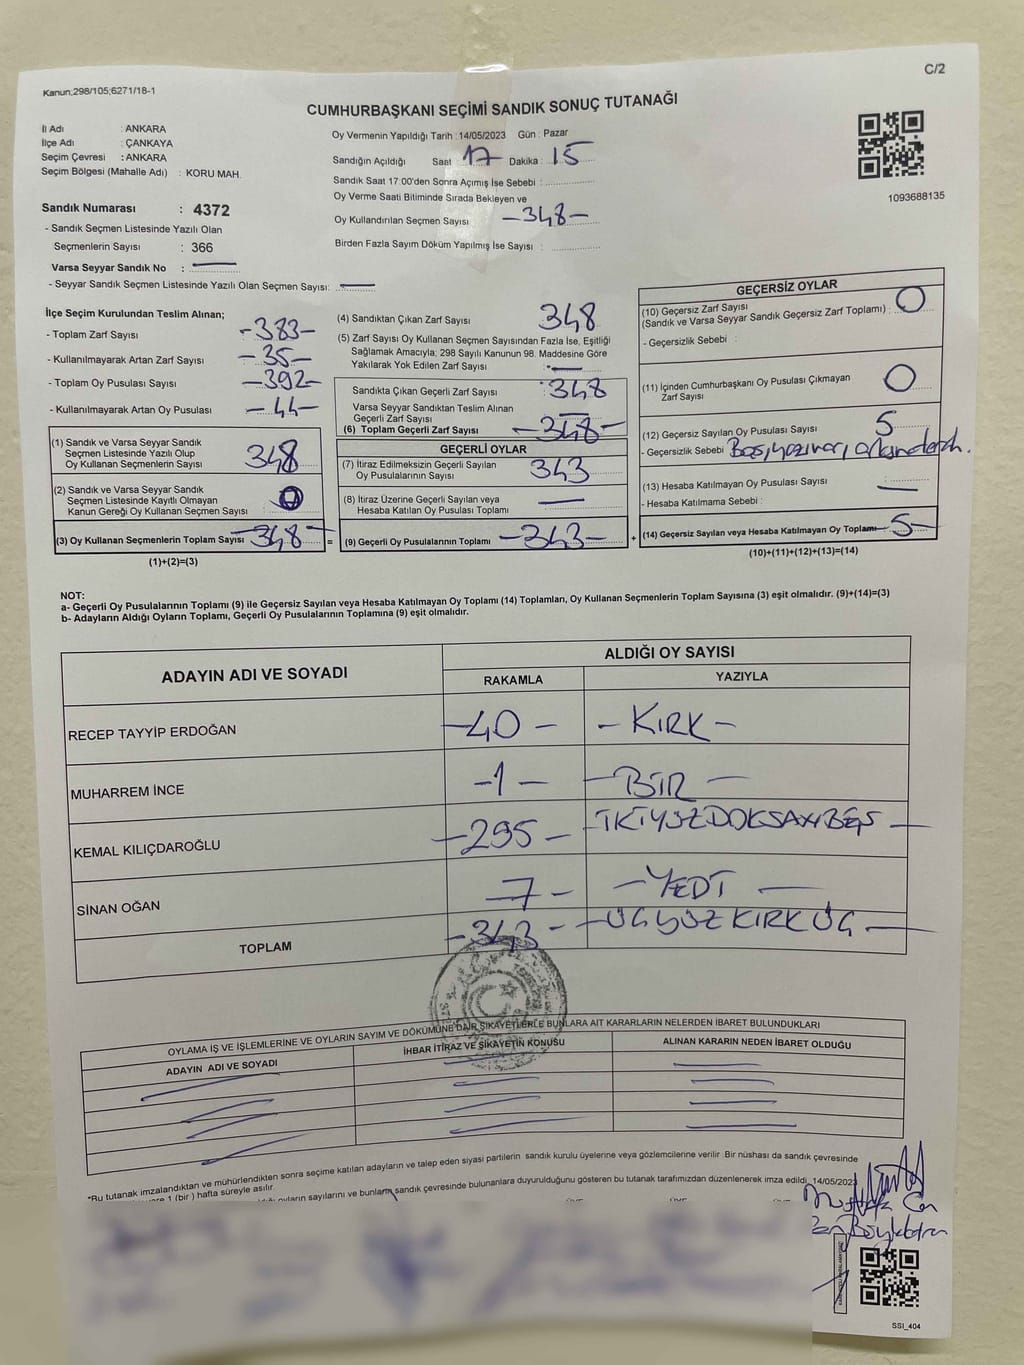 C/2
Kanun;298/105;6271/18-1
CUMHURBAŞKANI SEÇİMİ SANDIK SONUÇ TUTANAĞI
İl Adı : ANKARA
İlçe Adı : ÇANKAYA
Seçim Çevresi : ANKARA
Seçim Bölgesi (Mahalle Adı) : KORU MAH.
Sandık Numarası : 4372
- Sandık Seçmen Listesinde Yazılı Olan
Seçmenlerin Sayısı : 366
Varsa Seyyar Sandık No :
- Seyyar Sandık Seçmen Listesinde Yazılı Olan Seçmen Sayısı:
Oy Vermenin Yapıldığı Tarih : 14/05/2023 Gün : Pazar
Sandığın Açıldığı Saat : 17 Dakika : 15
Sandık Saat 17:00'den Sonra Açımış İse Sebebi :
Oy Verme Saati Bitiminde Sırada Bekleyen ve
Oy Kullandırılan Seçmen Sayısı -348-
Birden Fazla Sayım Döküm Yapılmış İse Sayısı :
1093688135
İlçe Seçim Kurulundan Teslim Alınan;
- Toplam Zarf Sayısı -383-
- Kullanılmayarak Artan Zarf Sayısı -35-
- Toplam Oy Pusulası Sayısı -392-
- Kullanılmayarak Artan Oy Pusulası -44-
(1) Sandık ve Varsa Seyyar Sandık
Seçmen Listesinde Yazılı Olup
Oy Kullanan Seçmenlerin Sayısı 348
(2) Sandık ve Varsa Seyyar Sandık
Seçmen Listesinde Kayıtlı Olmayan
Kanun Gereği Oy Kullanan Seçmen Sayısı : 0
(3) Oy Kullanan Seçmenlerin Toplam Sayısı -348- =
(1)+(2)=(3)
(4) Sandıktan Çıkan Zarf Sayısı 348
(5) Zarf Sayısı Oy Kullanan Seçmen Sayısından Fazla İse, Eşitliği
Sağlamak Amacıyla; 298 Sayılı Kanunun 98. Maddesine Göre
Yakılarak Yok Edilen Zarf Sayısı :
Sandıkta Çıkan Geçerli Zarf Sayısı : 348
Varsa Seyyar Sandıktan Teslim Alınan
Geçerli Zarf Sayısı
(6) Toplam Geçerli Zarf Sayısı -348-
GEÇERLİ OYLAR
(7) İtiraz Edilmeksizin Geçerli Sayılan
Oy Pusulalarının Sayısı 343
(8) İtiraz Üzerine Geçerli Sayılan veya
Hesaba Katılan Oy Pusulası Toplamı
(9) Geçerli Oy Pusulalarının Toplamı -343- +
GEÇERSİZ OYLAR
(10) Geçersiz Zarf Sayısı
(Sandık ve Varsa Seyyar Sandık Geçersiz Zarf Toplamı) : 0
- Geçersizlik Sebebi :
(11) İçinden Cumhurbaşkanı Oy Pusulası Çıkmayan
Zarf Sayısı 0
(12) Geçersiz Sayılan Oy Pusulası Sayısı 5
- Geçersizlik Sebebi
(13) Hesaba Katılmayan Oy Pusulası Sayısı
- Hesaba Katılmama Sebebi :
(14) Geçersiz Sayılan veya Hesaba Katılmayan Oy Toplamı -5-
(10)+(11)+(12)+(13)=(14)
NOT:
a- Geçerli Oy Pusulalarının Toplamı (9) ile Geçersiz Sayılan veya Hesaba Katılmayan Oy Toplamı (14) Toplamları, Oy Kullanan Seçmenlerin Toplam Sayısına (3) eşit olmalıdır. (9)+(14)=(3)
b- Adayların Aldığı Oyların Toplamı, Geçerli Oy Pusulalarının Toplamına (9) eşit olmalıdır.
ADAYIN ADI VE SOYADI
ALDIĞI OY SAYISI
RAKAMLA YAZIYLA
RECEP TAYYİP ERDOĞAN -40- -KIRK-
MUHARREM İNCE -1- -BİR-
KEMAL KILIÇDAROĞLU -295- -İKİYÜZDOKSANBEŞ-
SİNAN OĞAN 7- -YEDİ-
TOPLAM -343- -ÜÇYÜZKIRKÜÇ-
OYLAMA İŞ VE İŞLEMLERİNE VE OYLARIN SAYIM VE DÖKÜMÜNE DAİR ŞİKAYETLERLE BUNLARA AİT KARARLARIN NELERDEN İBARET BULUNDUKLARI
ADAYIN ADI VE SOYADI İHBAR İTİRAZ VE ŞİKAYETİN KONUSU ALINAN KARARIN NEDEN İBARET OLDUĞU
*Bu tutanak imzalandıktan ve mühürlendikten sonra seçime katılan adayların ve talep eden siyasi partilerin sandık kurulu üyelerine veya gözlemcilerine verilir. Bir nüshası da sandık çevresinde
1 (bir) hafta süreyle asılır.
oyların sayılarını ve bunların sandık çevresinde bulunanlara duyurulduğunu gösteren bu tutanak tarafımızdan düzenlenerek imza edildi. 14/05/2023
SSI_404